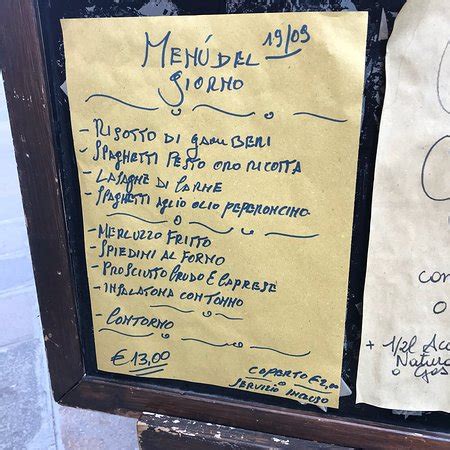 MENÚ DEL 19/09
GIORNO
- RISOTTO DI GAMBERI
- SPAGHETTI PESTO ORO RICOTTA
- LASAGNE DI CARNE
- SPAGHETTI AGLIO OLIO PEPERONCINO
O
- MERLUZZO FRITTO
- SPIEDINI AL FORNO
- PROSCIUTTO CRUDO E CAPRESE
- INSALATONA CON TONNO
O
- CONTORNO
€ 13,00
COPERTO € 2,00
SERVIZIO INCLUSO
con
o
+ 1/2l Acq
Natura
o Gas